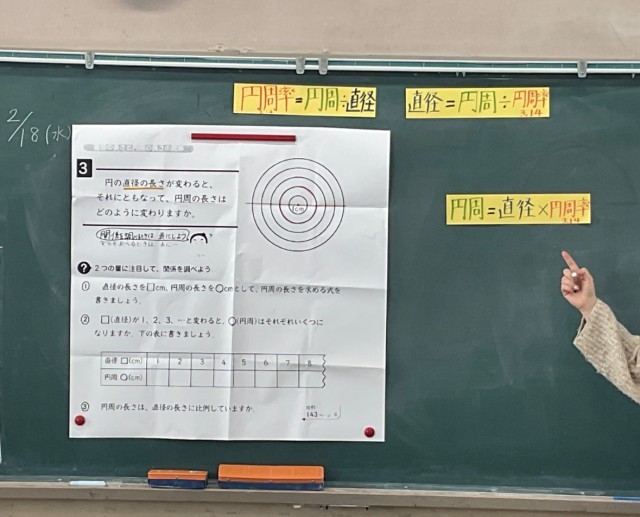 2/18(水)
円周率=円周÷直径
直径=円周÷円周率
3.14
円周=直径×円周率
3.14
3
円の直径の長さが変わると、
それにともなって、円周の長さは
どのように変わりますか。
1cm
? 2つの量に注目して、関係を調べよう
① 直径の長さを□cm、円周の長さを○cmとして、円周の長さを求める式を
書きましょう。
② □(直径)が1、2、3、…と変わると、○(円周)はそれぞれいくつに
なりますか。下の表に書きましょう。
直径 □(cm) 1 2 3 4 5 6 7 8
円周 ○(cm)
③ 円周の長さは、直径の長さに比例していますか。